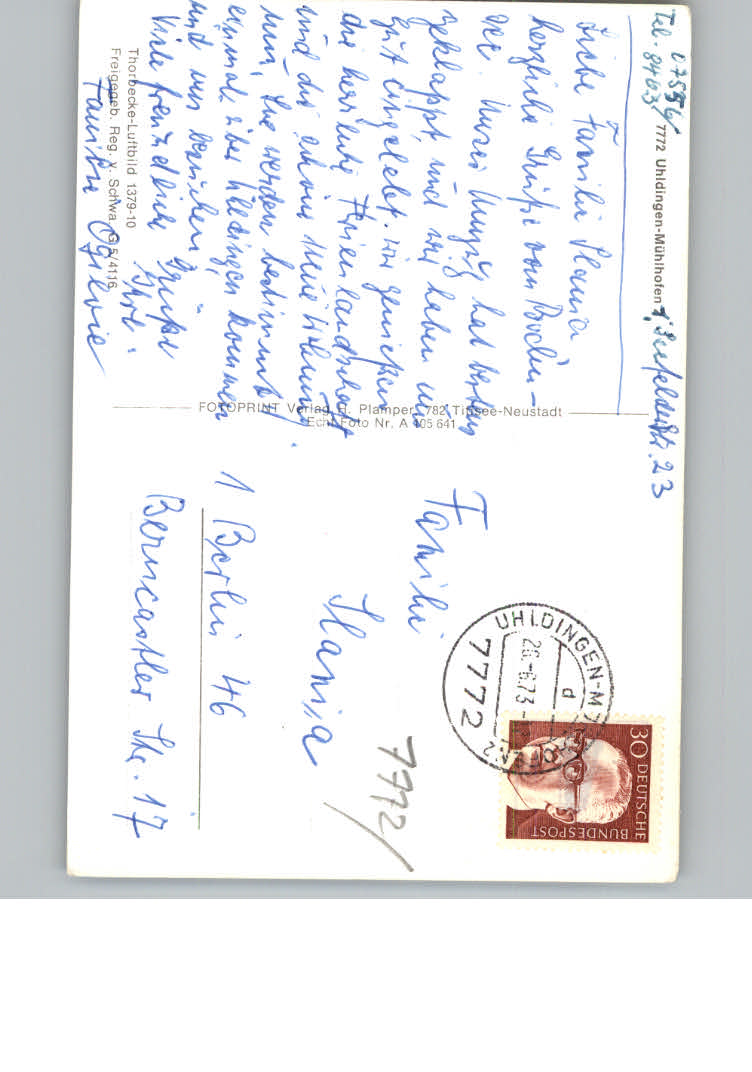 07556/
Tel. 8463/
7772 Uhldingen-Mühlhofen 1, Seefelderstr. 23
Liebe Familie Slania
herzliche Grüße vom Boden-
see. Unser Umzug hat bestens
geklappt und wir haben uns
gut eingelebt. Wir genießen
die herrliche Ferienlandschaft
und die schöne neue Wohnung.
Nun, Sie werden bestimmt
einmal über Uhldingen kommen
und uns besuchen.
Viele freundliche Grüße
Ihre
Familie Ogilvie
Thorbecke-Luftbild 1379-10
Freigegeb. Reg. v. Schwa. G 5/4116
FOTOPRINT Verlag H. Plamper, 782 Titisee-Neustadt
Echt Foto Nr. A 105 641
Familie
Slania
1 Berlin 46
Berncastler Str. 17
7772/
UHLDINGEN-M
26.-6.73
d
7772
30 DEUTSCHE
BUNDESPOST